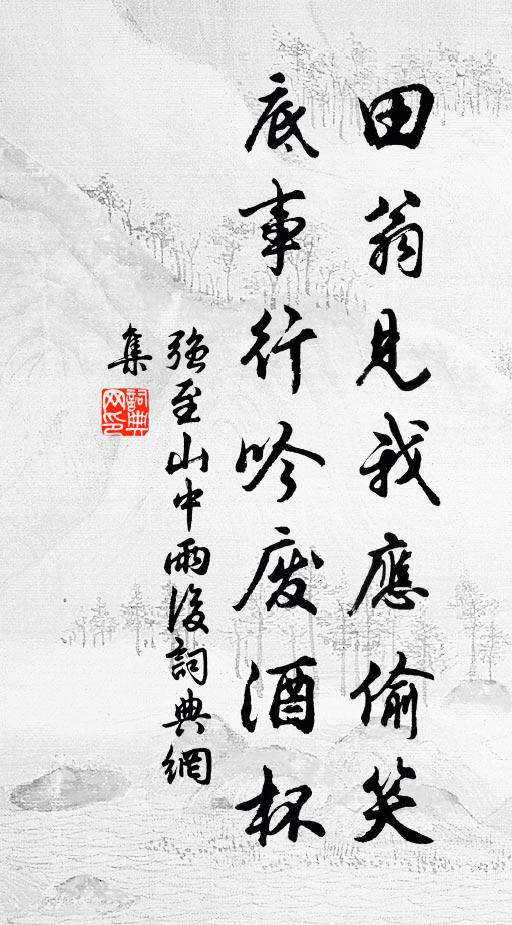 田翁見我應偷笑
底事行吟廢酒杯
強至山中雨後詞典網
集
詞典
网印